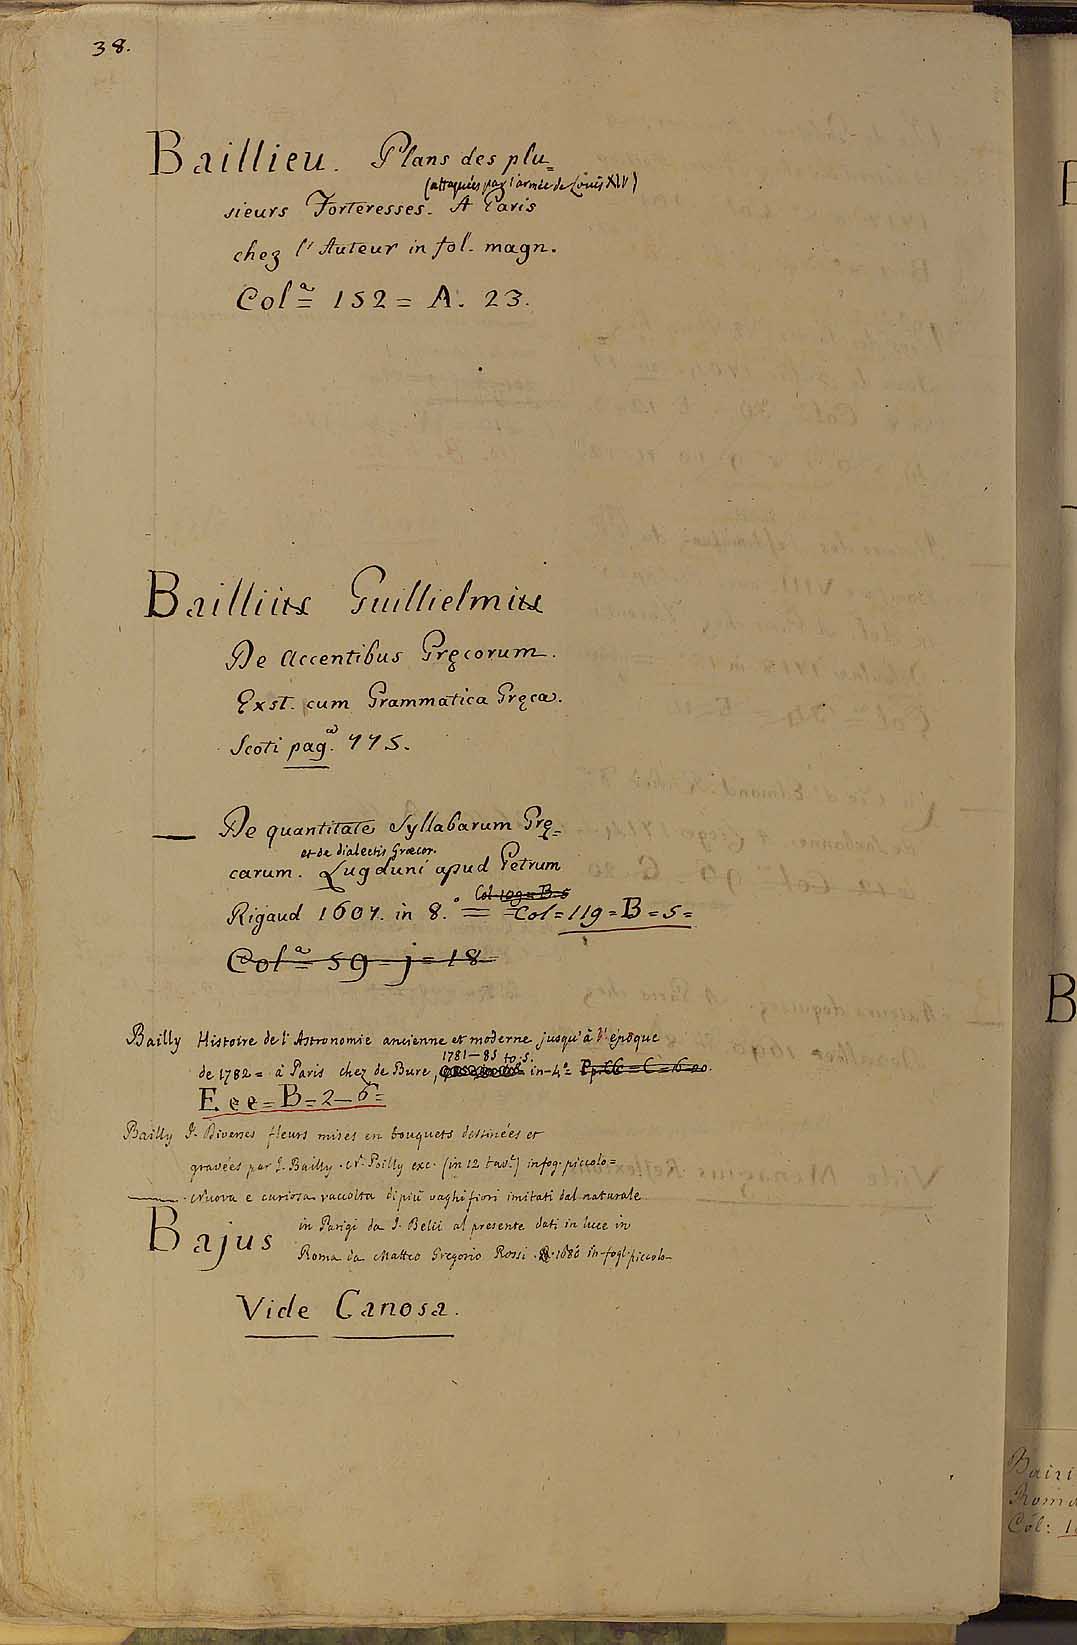 38.
Baillieu. Plans des plu=
(attaquées par l'armée de Louis XIV)
sieurs Forteresses. A Paris
chez l'Auteur in fol. magn.
Col.a = 152 = A. 23.
Baillius Guillielmus
De Accentibus Gręcorum.
Exst. cum Grammatica Gręca.
Scoti pag. 775.
— De quantitate Syllabarum Grę=
et de dialectis Græcor.
carum. Lugduni apud Petrum
Col 109 = B = 5
Rigaud 1607. in 8.° = Col = 119 = B = 5 =
Col.a = 59 = j = 18
Bailly Histoire de l'Astronomie ancienne et moderne jusqu'à l'époque
1781—85 to. 5.
de 1782 = à Paris chez de Bure, in-4.° =
E e e = B = 2 — 6 =
Bailly J. Diverses fleurs mises en bouquets dessinées et
gravées par J. Bailly. N. Poilly exc. (in 12 tav.e) in fog. piccolo =
— Nuova e curiosa raccolta di più vaghi fiori imitati dal naturale
in Parigi da J. Belii al presente dati in luce in
Bajus
Roma da Matteo Gregorio Rossi. 1686 in-fogl. piccolo—
Vide Canosa.
B
Bairi
Roma
Col: 1